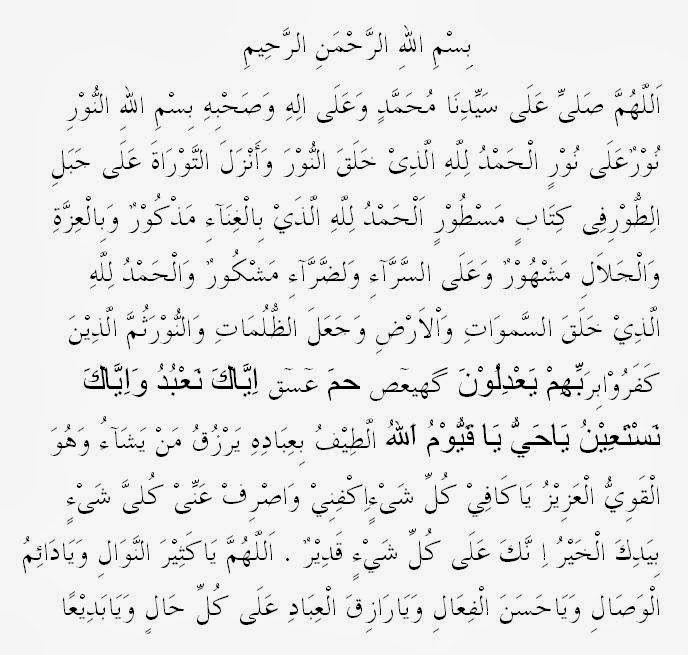 بِسْمِ اللهِ الرَّحْمَنِ الرَّحِيمِ
اَللَّهُمَّ صَلىِّ عَلَى سَيِّدِنَا مُحَمَّدٍ وَعَلَى الِهِ وَصَحْبِهِ بِسْمِ اللهِ النُّوْرِ
نُوْرٌعَلَى نُوْرٍ الْحَمْدُ لِلَّهِ الَّذِىْ خَلَقَ النُّوْرَ وَأَنْزَلَ التَّوْرَاةَ عَلَى جَبَلِ
الِطُّوْرِفِى كِتَابٍ مَسْطُوْرٍ اَلْحَمْدُ لِلَّهِ الَّذَيْ بِالْغِنَآءِ مَذْكُوْرٌ وَبِالْعِزَّةِ
وَالْجَلاَلِ مَشْهُوْرٌ وَعَلَى السَّرَّآءِ وَلضَّرَّآءِ مَشْكُورٌ وَالْحَمْدُ لِلَّهِ
الَّذِيْ خَلَقَ السَّموَاتِ وَاْلاَرْضِ وَجَعَلَ الظُّلُمَاتِ وَالنُّوْرَثُمَّ الَّذِيْنَ
كَفَرُوْابِرَبِّهِمْ يَعْدِلُوْنَ كهيعص حمَ عسق اِيَّاكَ نَعْبُدُ وَاِيَّاكَ
نَسْتَعِيْنُ يَاحَيُّ يَا قَيُّوْمُ اَللهُ الَّطِيْفُ بِعِبَادِهِ يَرْزُقُ مَنْ يَشَآءُ وَهُوَ
الْقَوِيُّ الْعَزِيْزُ يَاكَافِيْ كُلِّ شَىْءٍاِكْفِنِيْ وَاصْرِفْ عَنِّىْ كُلىَّ شَىْءٍ
بِيَدِكَ الْخَيْرُ اِ نَّكَ عَلَى كُلِّ شَيْءٍ قَدِيْرٌ . اَللَّهُمَّ يَاكَثِيْرَ النَّوَالِ وَيَادَائِمُ
الْوَصَالِ وَيَاحَسَنَ الْفِعَالِ وَيَارَازِقَ الْعِبَادِ عَلَى كُلِّ حَالٍ وَيَابَدِيْعًا